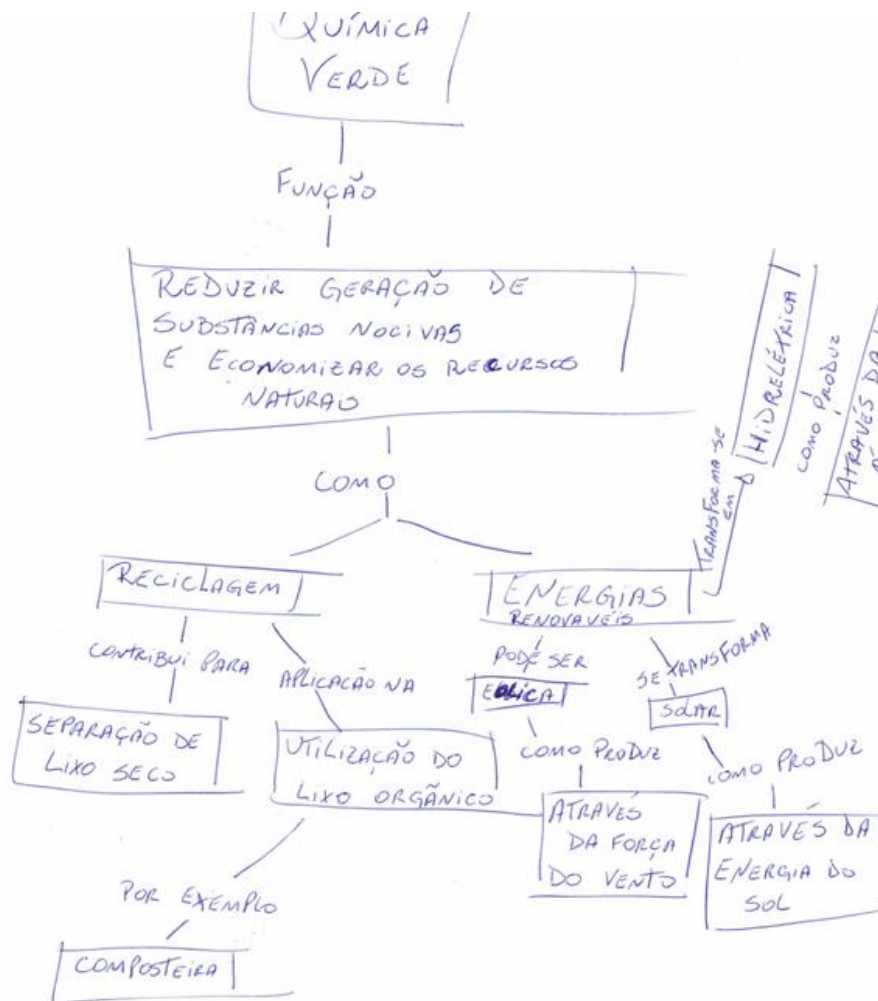 QUÍMICA
VERDE
FUNÇÃO
REDUZIR GERAÇÃO DE
SUBSTÂNCIAS NOCIVAS
E ECONOMIZAR OS RECURSOS
NATURAIS
COMO
RECICLAGEM
CONTRIBUI PARA
SEPARAÇÃO DE
LIXO SECO
APLICACÃO NA
UTILIZAÇÃO DO
LIXO ORGÂNICO
POR EXEMPLO
COMPOSTEIRA
ENERGIAS
RENOVAVÉIS
PODE SER
EOLICA
COMO PRODUZ
ATRAVÉS
DA FORÇA
DO VENTO
SE TRANSFORMA
SOLAR
COMO PRODUZ
ATRAVÉS DA
ENERGIA DO
SOL
TRANSFORMA-SE
EM
HIDRELÉTRICA
COMO PRODUZ
ATRAVÉS DA